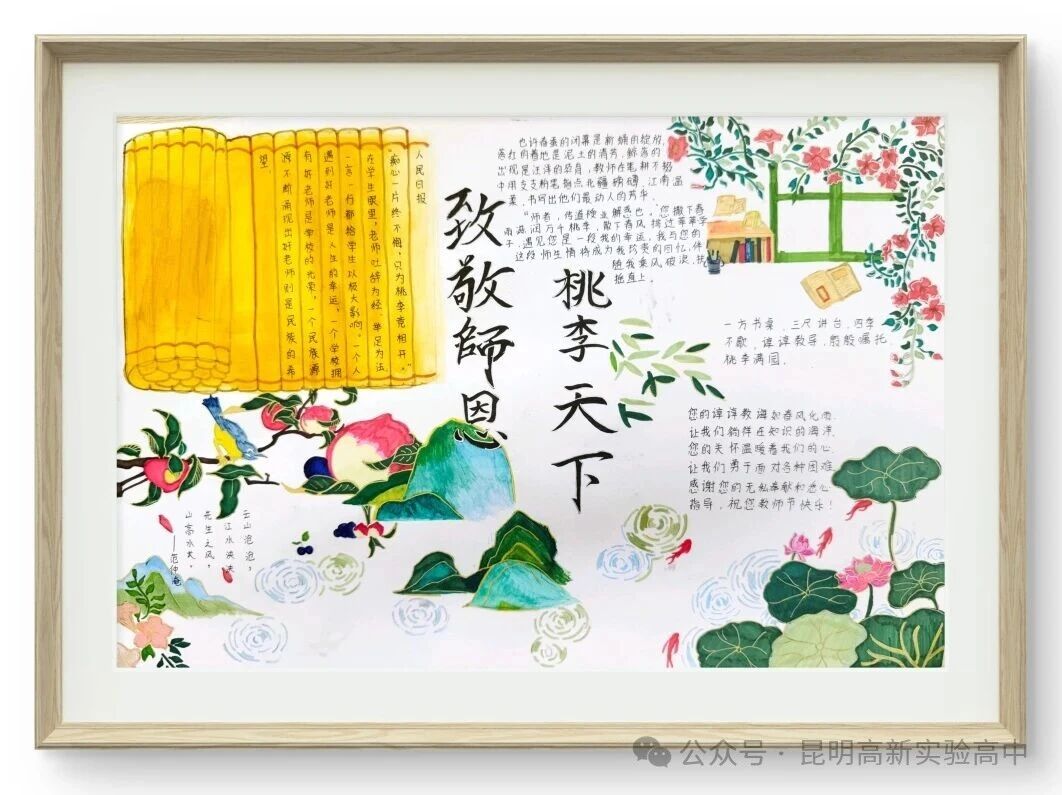 人民日报
“痴心一片终不悔,只为桃李竞相开。”
在学生眼里,老师吐辞为经、举足为法
一言一行都给学生以极大影响。一个人
遇到好老师是人生的幸运,一个学校拥
有好老师是学校的光荣,一个民族源
源不断涌现出好老师则是民族的希
望。
致敬師恩
桃李天下
也许春季的闭幕是新蛹的绽放,
落红的着地是泥土的清芳,
出现是汪洋的总肩,教师在笔耕不辍
中用支支粉笔指点北疆磅礴,江南温
柔,书写出他们最动人的芳华。
“师者,传道授业解惑也。”您撒下春
雨滋润万千桃李,散下春风拂过莘莘学
子,遇见您是一段我的幸运,我与您的
这段师生情将成为我珍贵的回忆,伴
随我乘风破浪,扶
摇直上。
一方书桌,三尺讲台,四季
不歇,谆谆教导,殷殷嘱托,
桃李满园。
您的谆谆教诲如春风化雨,
让我们徜徉在知识的海洋,
您的关怀温暖着我们的心,
让我们勇于面对各种困难,
感谢您的无私奉献和悉心
指导,祝您教师节快乐!
云山沧沧,
江水泱泱
先生之风,
山高水长。
——范仲淹
公众号·昆明高新实验高中